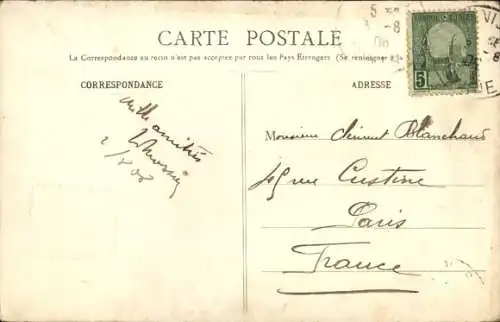 CARTE POSTALE
La Correspondance au recto n'est pas acceptée par tous les Pays Étrangers (Se renseigner à la
CORRESPONDANCE
ADRESSE
amitiés
Monsieur Clément Blanchard
45 rue Custine
Paris
France
5